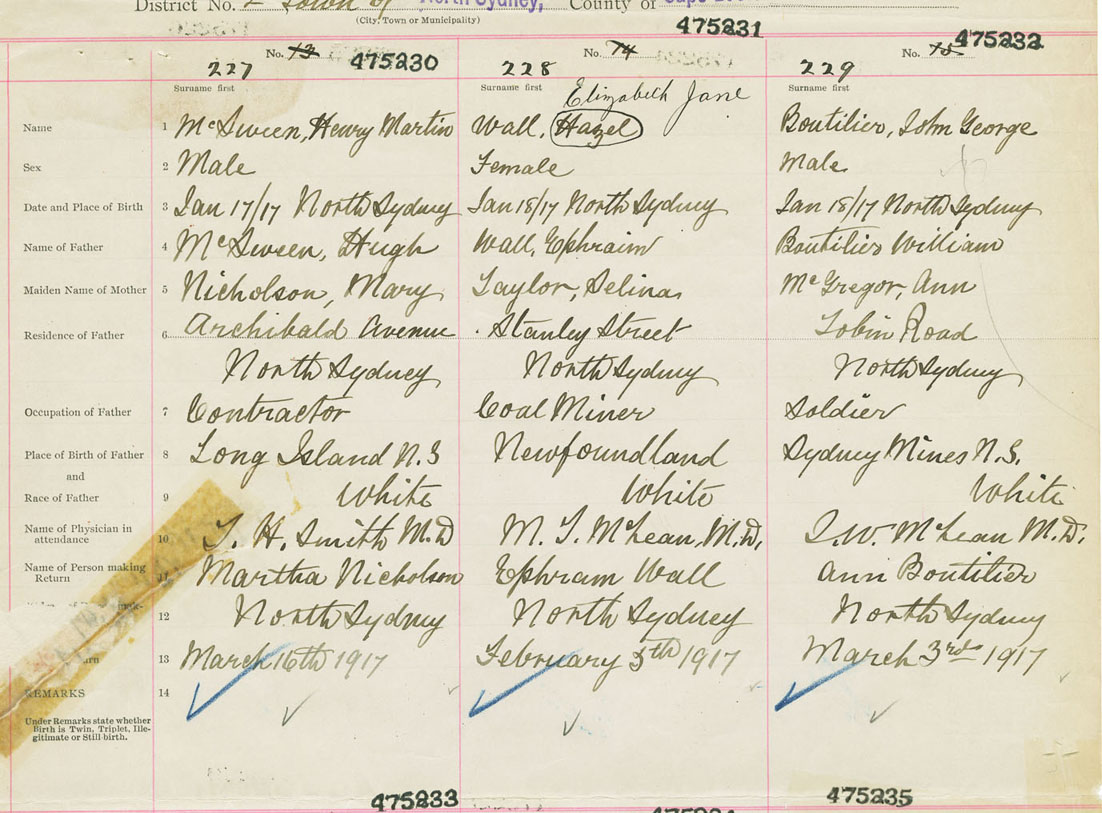 District No. 2 Town of North Sydney, County of Cape
(City, Town or Municipality)
475231
No. 13 475230 No. 74 No. 75 475232
227 228 229
Surname first Surname first Surname first
Elizabeth Jane
Name 1 McSween, Henry Martin Wall, Hazel Boutilier, John George
Sex 2 Male Female Male
Date and Place of Birth 3 Jan 17/17 North Sydney Jan 18/17 North Sydney Jan 18/17 North Sydney
Name of Father 4 McSween, Hugh Wall, Ephraim Boutilier William
Maiden Name of Mother 5 Nicholson, Mary Taylor, Selina McGregor, Ann
Residence of Father 6 Archibald Avenue Stanley Street Tobin Road
North Sydney North Sydney North Sydney
Occupation of Father 7 Contractor Coal Miner Soldier
Place of Birth of Father 8 Long Island N.S Newfoundland Sydney Mines N.S.
and
Race of Father 9 White White White
Name of Physician in
attendance 10 T. H. Smith M.D M. T. McLean, M.D. J.W. McLean M.D.
Name of Person making
Return 11 Martha Nicholson Ephram Wall Ann Boutilier
12 North Sydney North Sydney North Sydney
13 March 16th 1917 February 5th 1917 March 3rd 1917
REMARKS 14
Under Remarks state whether
Birth is Twin, Triplet, Ille-
gitimate or Still birth.
475233 475235